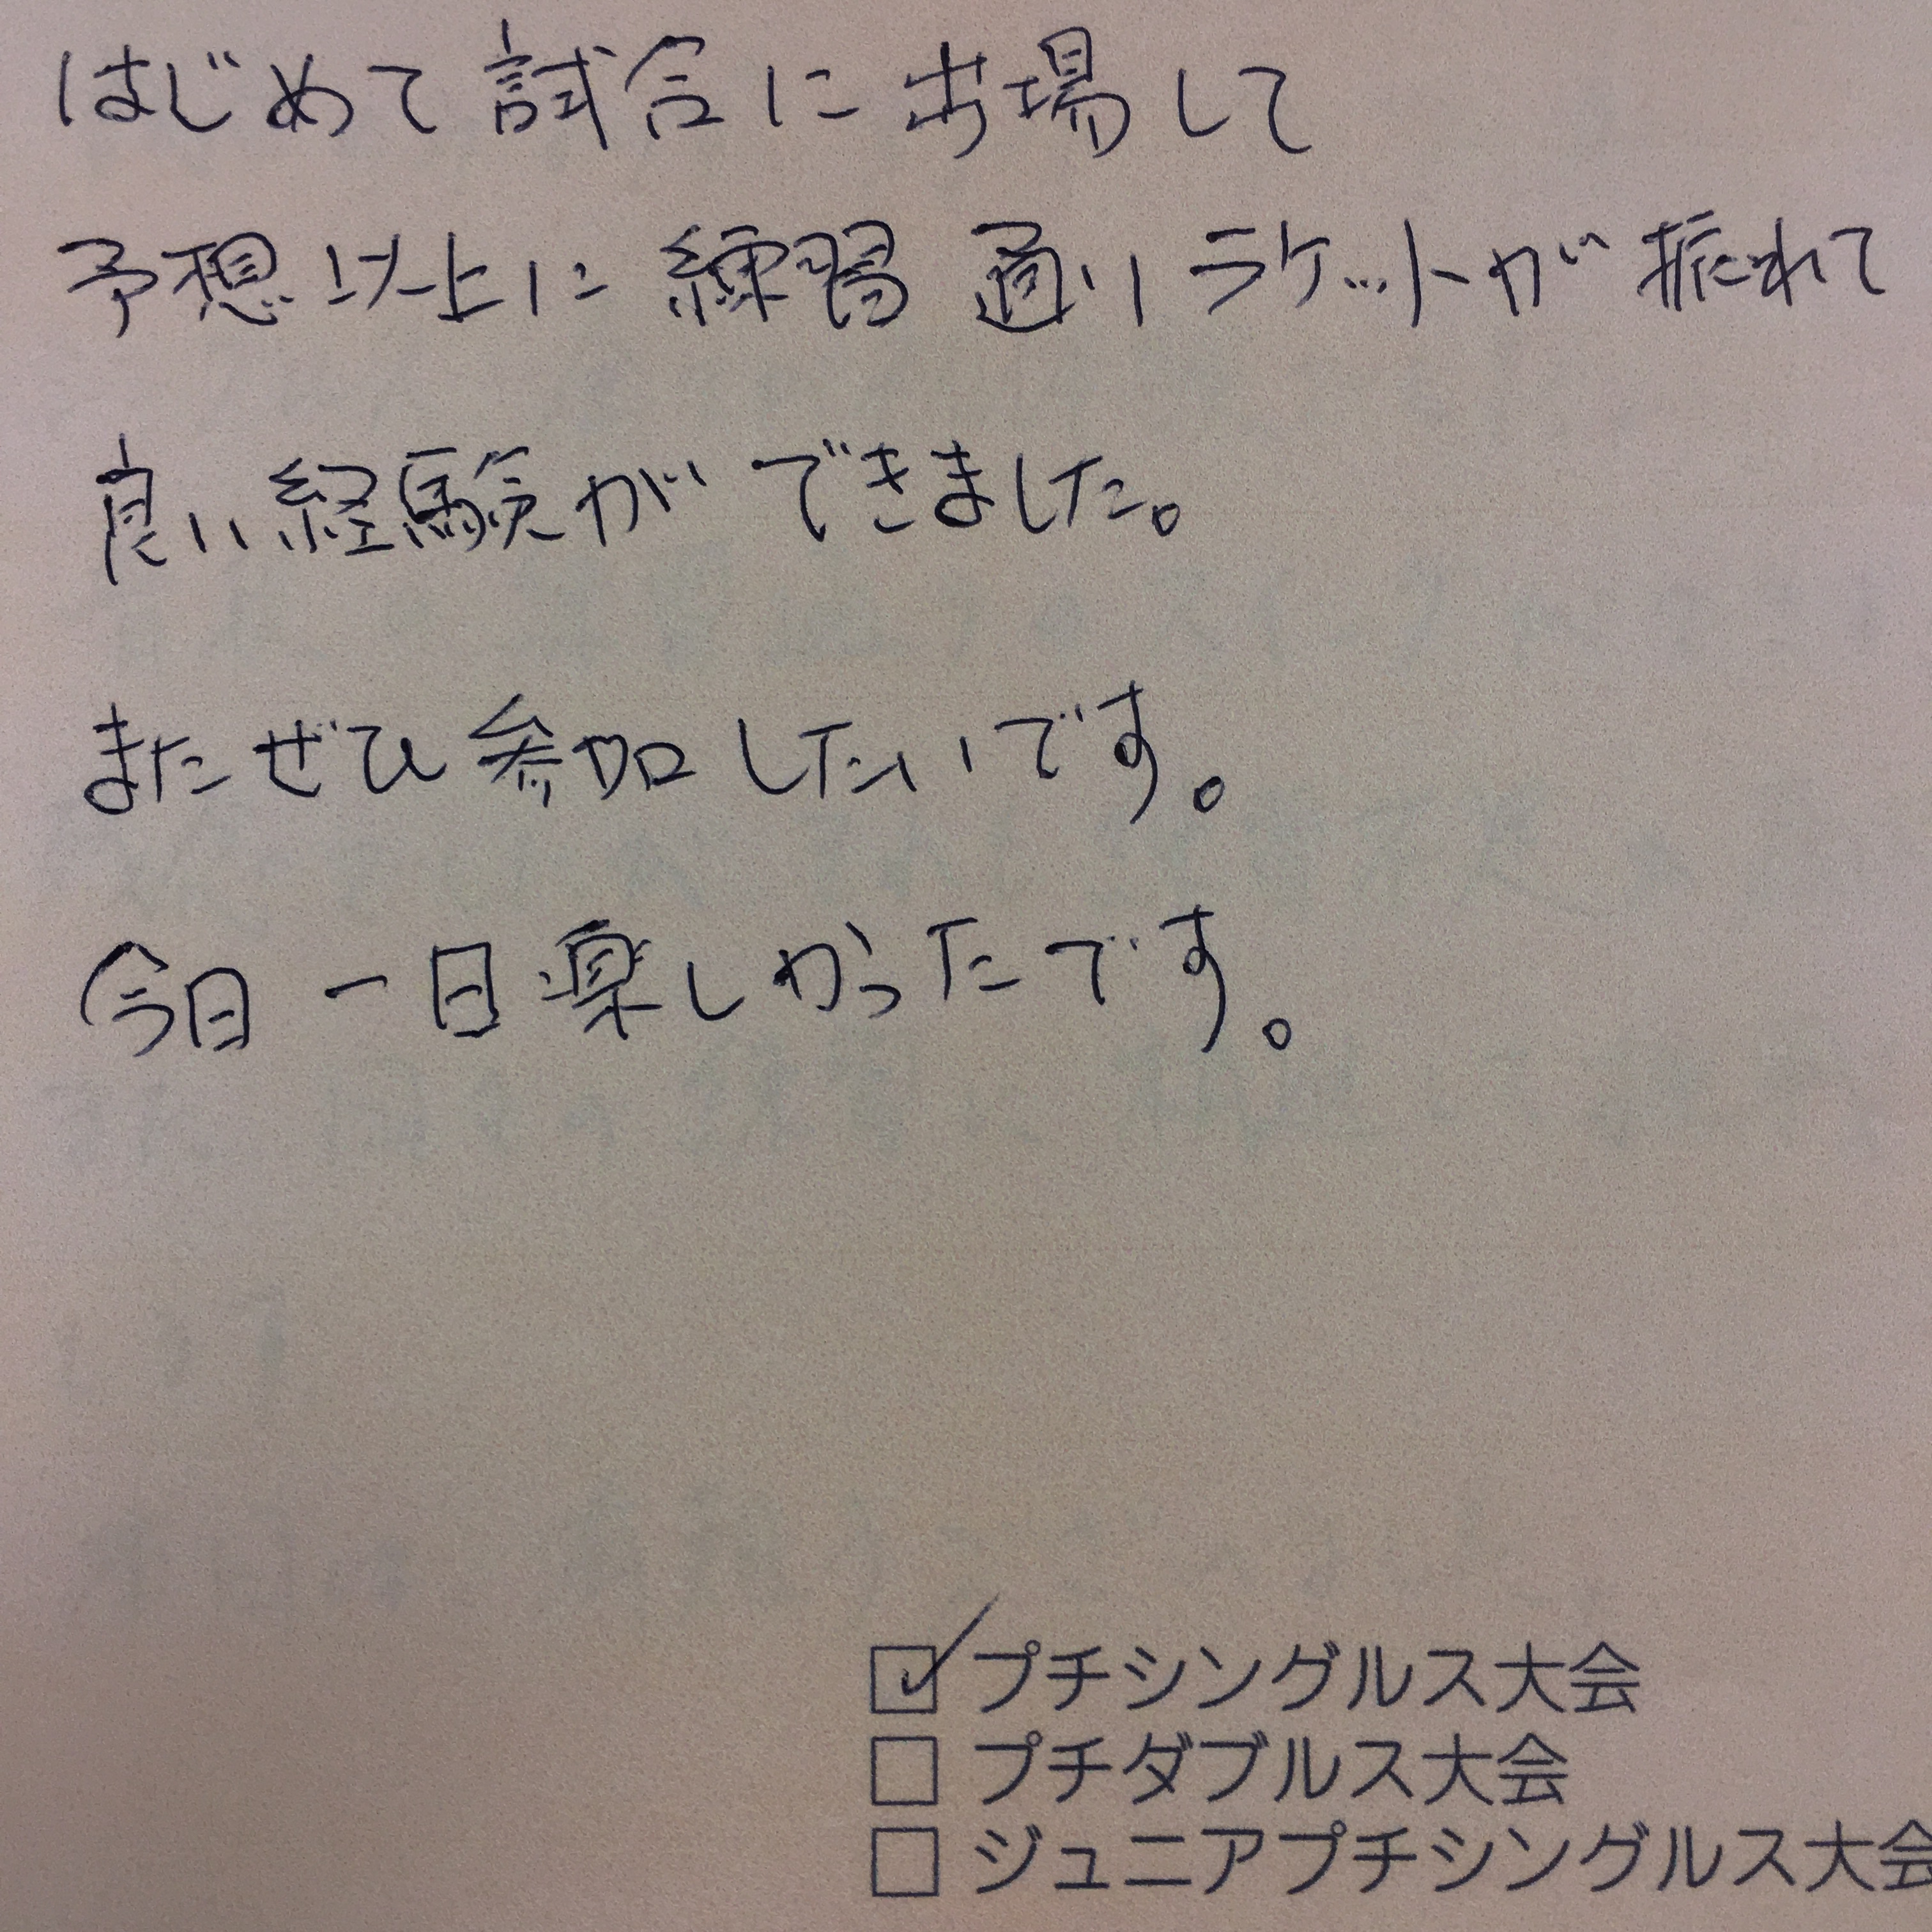 はじめて試合に出場して
予想以上に練習通りラケットが振れて
良い経験ができました。
またぜひ参加したいです。
今日一日楽しかったです。
☑プチシングルス大会
□プチダブルス大会
□ジュニアプチシングルス大会